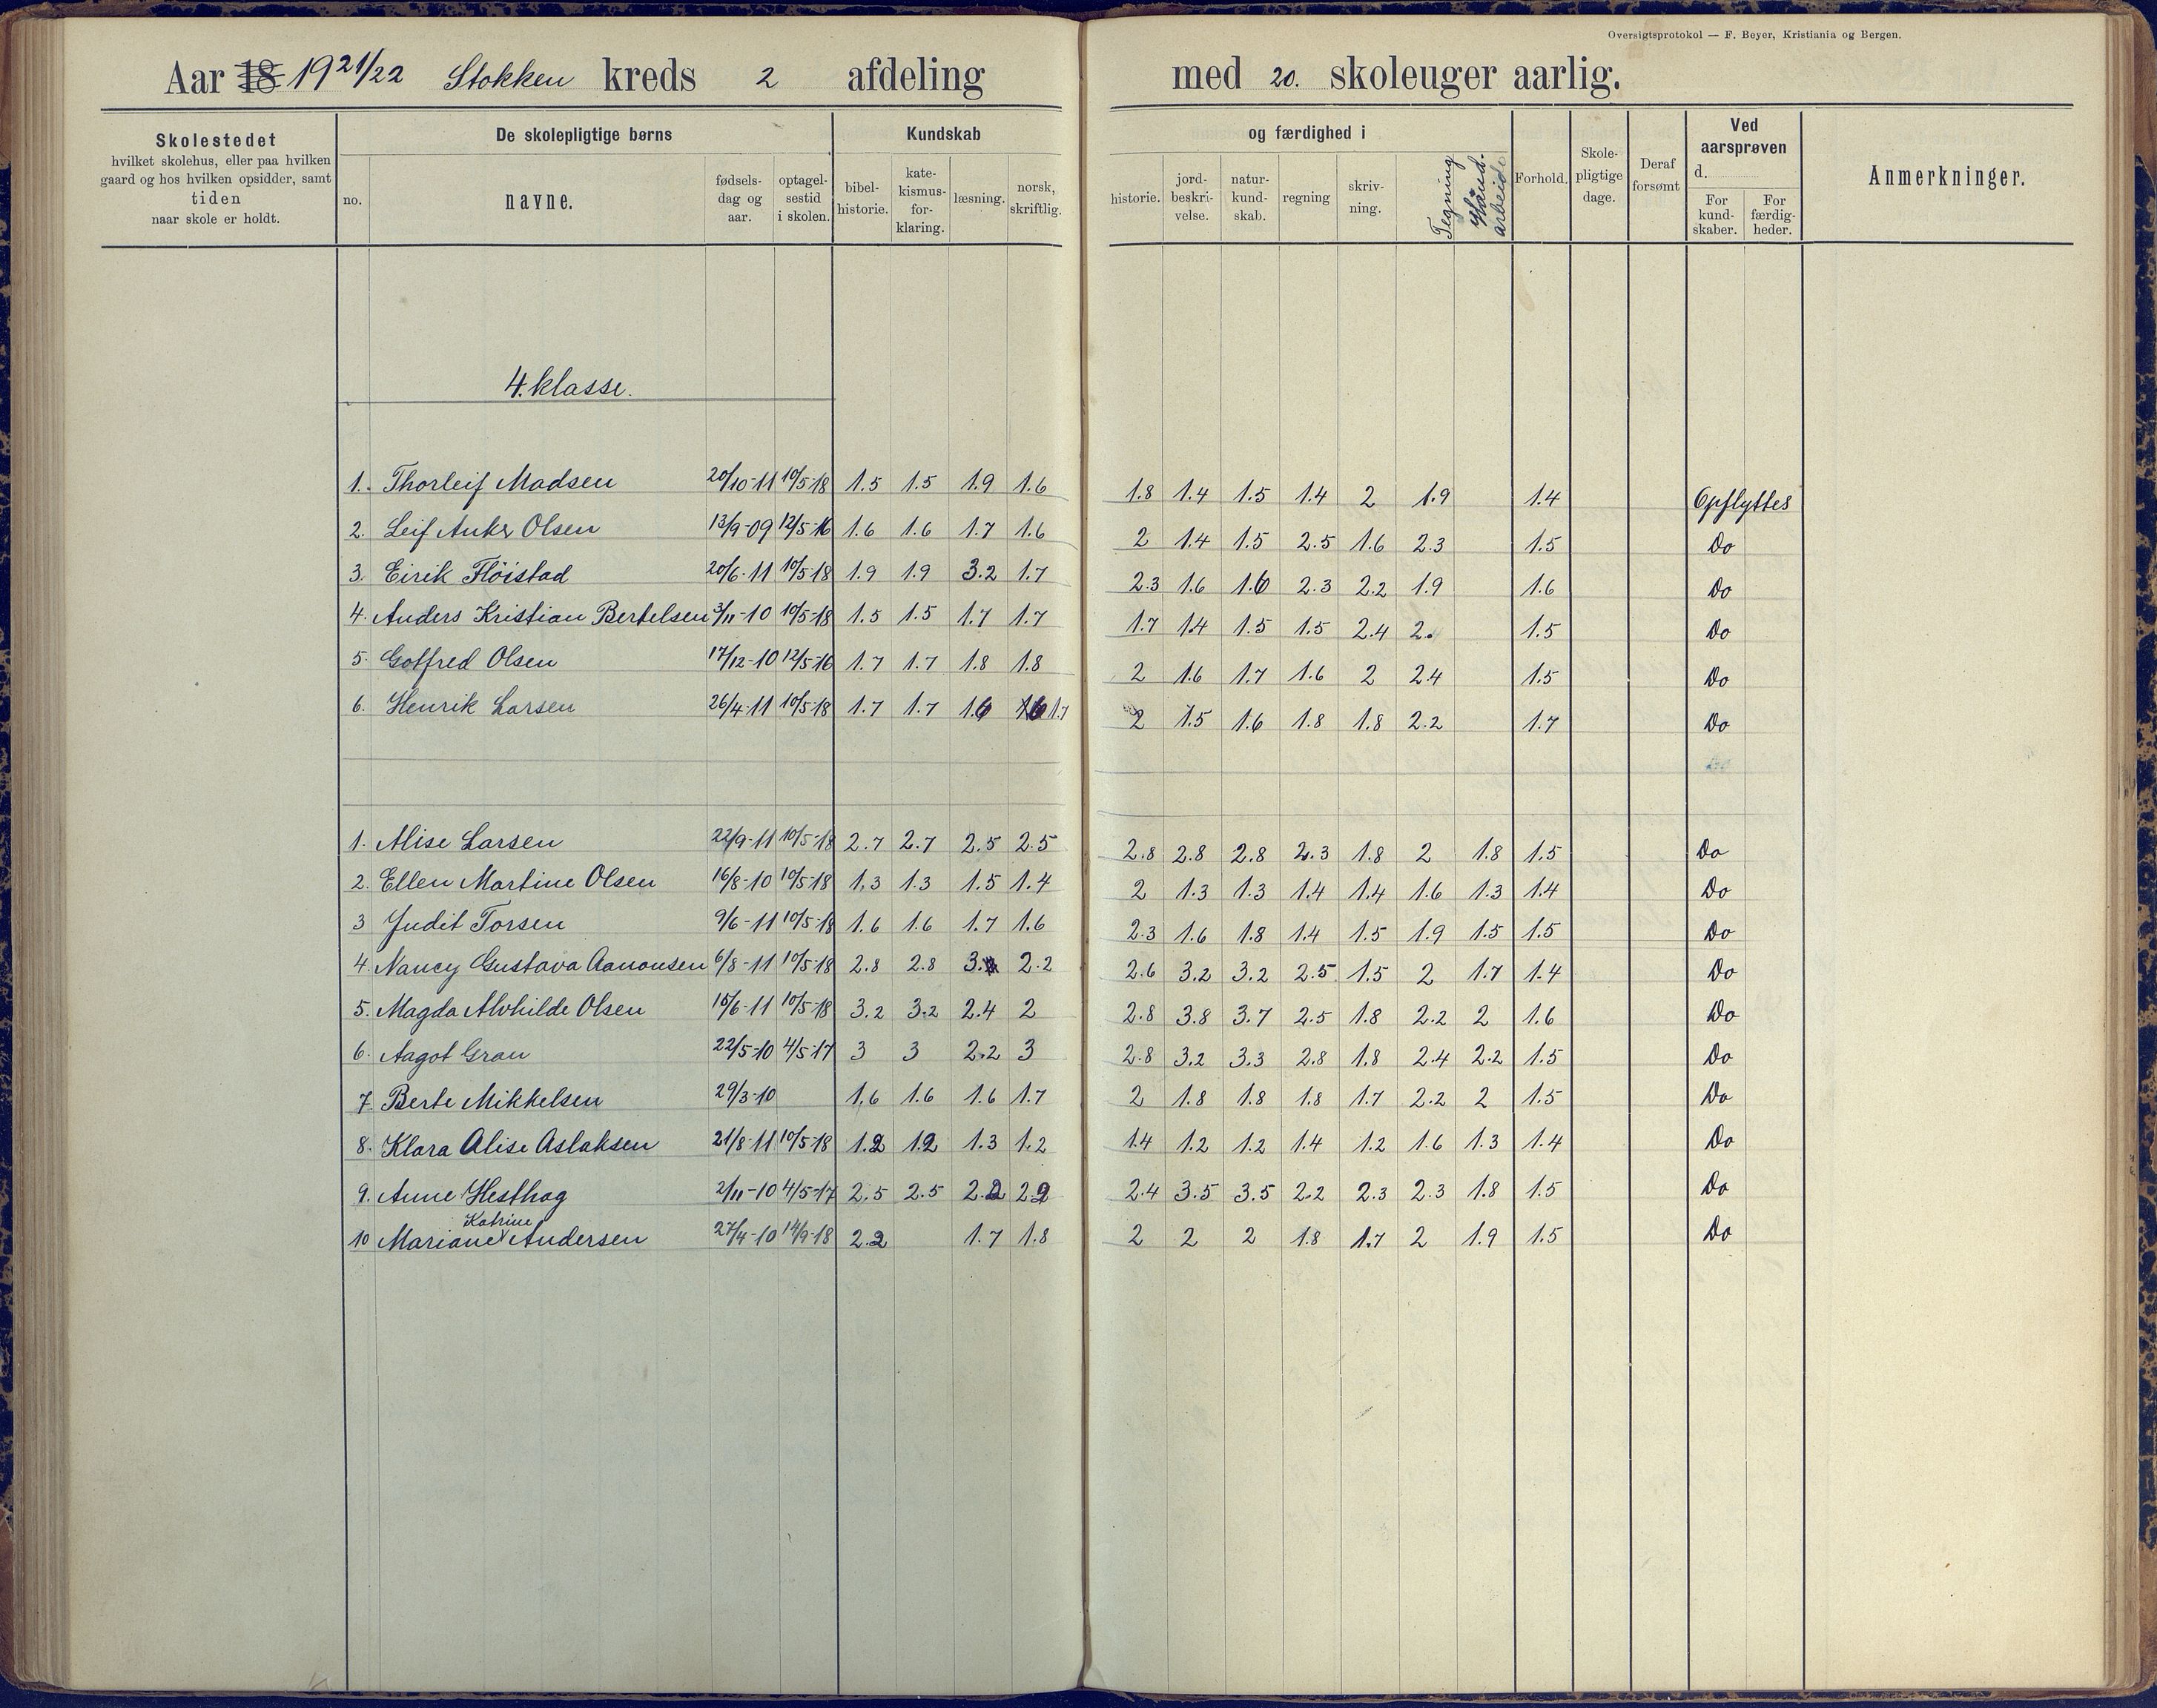 Oversigtsprotokol — F. Beyer, Kristiania og Bergen.
Aar 18 1921/22 Stokken kreds 2 afdeling med 20. skoleuger aarlig.
Skolestedet
hvilket skolehus, eller paa hvilken
gaard og hos hvilken opsidder, samt
tiden
naar skole er holdt.
De skolepligtige børns
no.
navne.
fødsels-
dag og
aar.
optagel-
sestid
i skolen.
Kundskab
bibel-
historie.
kate-
kismus-
for-
klaring.
læsning.
norsk,
skriftlig.
og færdighed i
historie.
jord-
beskri-
velse.
natur-
kund-
skab.
regning
skriv-
ning.
Tegning
Haand-
arbeide
Forhold.
Skole-
pligtige
dage.
Deraf
forsømt
Ved
aarsprøven
d.
For
kund-
skaber.
For
færdig-
heder.
Anmerkninger.
4. klasse.
1. Thorleif Madsen 20/10-11 10/5-18 1.5 1.5 1.9 1.6 1.8 1.4 1.5 1.4 2 1.9 1.4 Opflyttes
2. Leif Anker Olsen 13/9-09 12/5-16 1.6 1.6 1.7 1.6 2 1.4 1.5 2.5 1.6 2.3 1.5 Do
3. Eirik Flöistad 20/6-11 10/5-18 1.9 1.9 3.2 1.7 2.3 1.6 1.6 2.3 2.2 1.9 1.6 Do
4. Anders Kristian Bertelsen 3/11-10 10/5-18 1.5 1.5 1.7 1.7 1.7 1.4 1.5 1.5 2.4 2. 1.5 Do
5. Gotfred Olsen 17/12-10 12/5-16 1.7 1.7 1.8 1.8 2 1.6 1.7 1.6 2 2.4 1.5 Do
6. Henrik Larsen 26/4-11 10/5-18 1.7 1.7 1.6 1.7 2 1.5 1.6 1.8 1.8 2.2 1.7 Do
1. Alise Larsen 22/9-11 10/5-18 2.7 2.7 2.5 2.5 2.8 2.8 2.8 2.3 1.8 2 1.8 1.5 Do
2. Ellen Martine Olsen 16/8-10 10/5-18 1.3 1.3 1.5 1.4 2 1.3 1.3 1.4 1.4 1.6 1.3 1.4 Do
3 Judit Torsen 9/6-11 10/5-18 1.6 1.6 1.7 1.6 2.3 1.6 1.8 1.4 1.5 1.9 1.5 1.5 Do
4. Nancy Gustava Aanonsen 6/8-11 10/5-18 2.8 2.8 3. 2.2 2.6 3.2 3.2 2.5 1.5 2 1.7 1.4 Do
5. Magda Alvhilde Olsen 15/6-11 10/5-18 3.2 3.2 2.4 2 2.8 3.8 3.7 2.5 1.8 2.2 2 1.6 Do
6. Aagot Gran 22/5-10 4/5-17 3 3 2.2 3 2.8 3.2 3.3 2.8 1.8 2.4 2.2 1.5 Do
7 Berte Mikkelsen 29/3-10 1.6 1.6 1.6 1.7 2 1.8 1.8 1.8 1.7 2.2 2 1.5 Do
8. Klara Alise Aslaksen 21/8-11 10/5-18 1.2 1.2 1.3 1.2 1.4 1.2 1.2 1.4 1.2 1.6 1.3 1.4 Do
9. Anne Hesthag 2/11-10 4/5-17 2.5 2.5 2.2 2.2 2.4 3.5 3.5 2.2 2.3 2.3 1.8 1.5 Do
Katrine
10 Mariane Andersen 27/4-10 14/9-18 2.2 1.7 1.8 2 2 2 1.8 1.7 2 1.9 1.5 Do